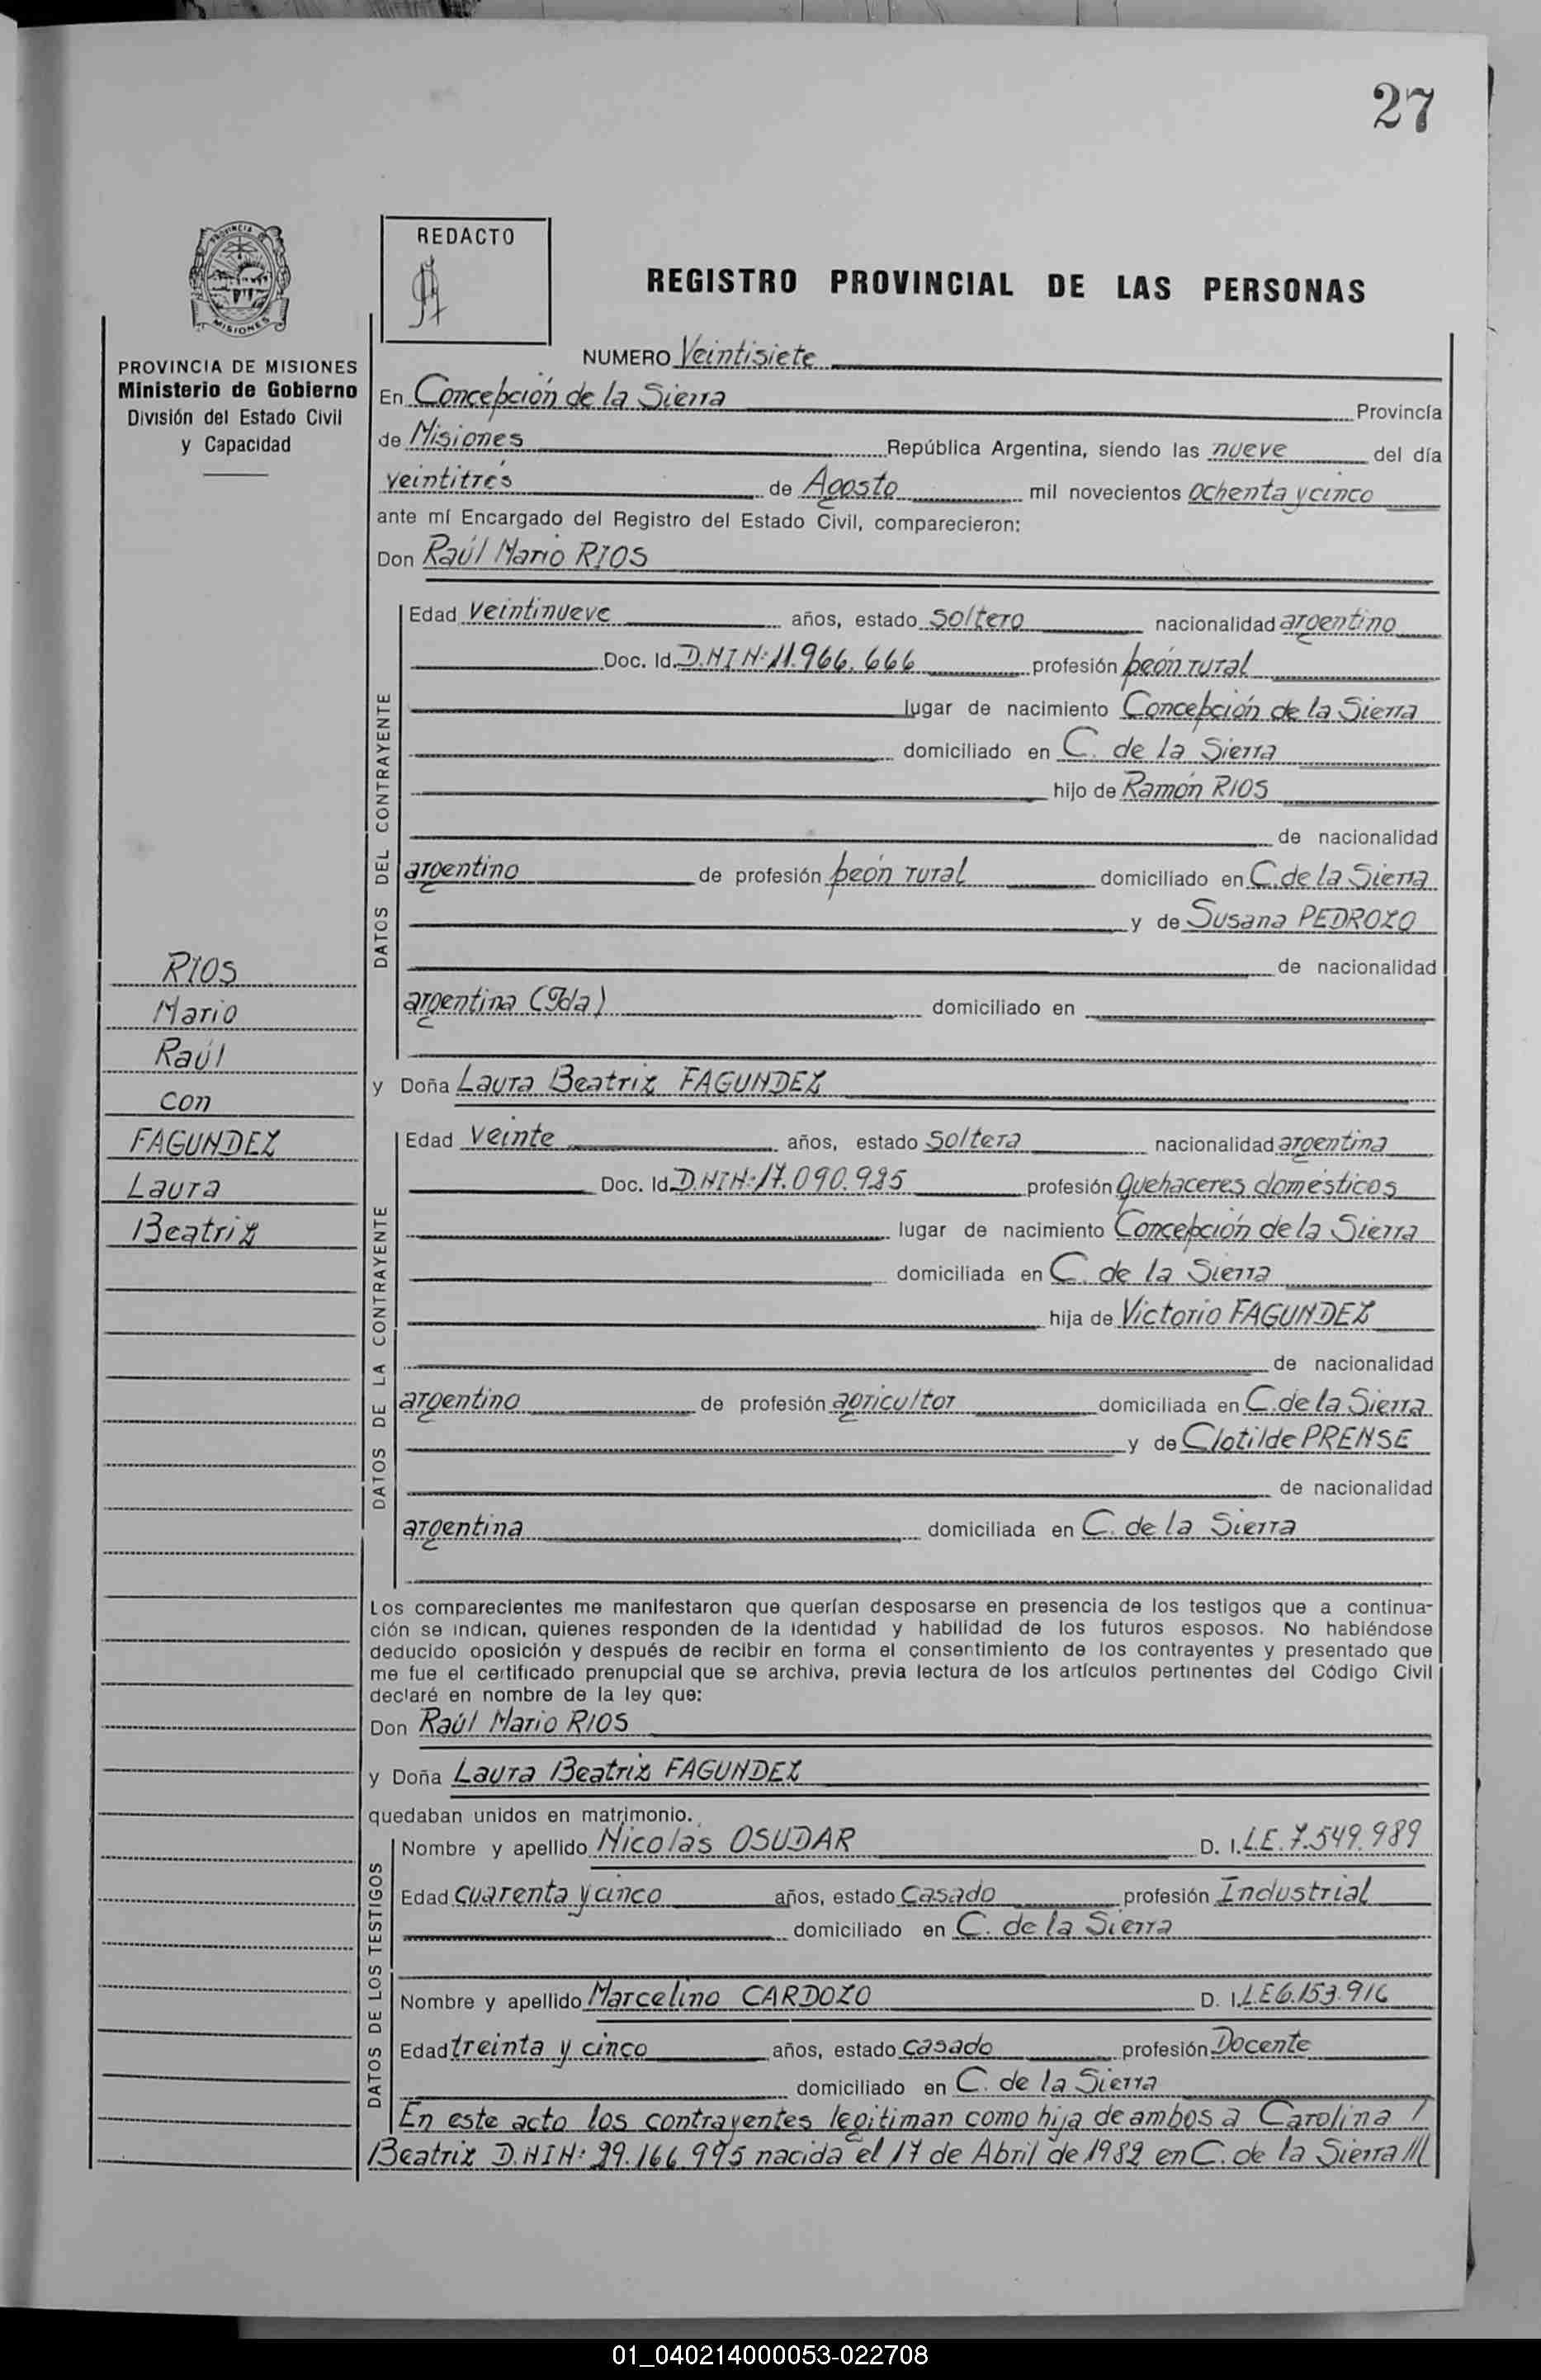 27
PROVINCIA
MISIONES
REDACTO
REGISTRO PROVINCIAL DE LAS PERSONAS
PROVINCIA DE MISIONES
Ministerio de Gobierno
División del Estado Civil
y Capacidad
NUMERO Veintisiete
En Concepción de la Sierra Provincia
de Misiones República Argentina, siendo las nueve del día
veintitrés de Agosto mil novecientos ochenta y cinco
ante mí Encargado del Registro del Estado Civil, comparecieron:
Don Raúl Mario RIOS
DATOS DEL CONTRAYENTE
Edad veintinueve años, estado soltero nacionalidad argentino
Doc. Id. D.N.I Nº: 11.966.666 profesión peón rural
lugar de nacimiento Concepción de la Sierra
domiciliado en C. de la Sierra
hijo de Ramón RIOS
de nacionalidad
argentino de profesión peón rural domiciliado en C. de la Sierra
y de Susana PEDROZO
de nacionalidad
argentina (Fda) domiciliado en
RIOS
Mario
Raúl
con
FAGUNDEZ
Laura
Beatriz
y Doña Laura Beatriz FAGUNDEZ
DATOS DE LA CONTRAYENTE
Edad veinte años, estado soltera nacionalidad argentina
Doc. Id. D.N.I Nº: 17.090.925 profesión Quehaceres domésticos
lugar de nacimiento Concepción de la Sierra
domiciliada en C. de la Sierra
hija de Victorio FAGUNDEZ
de nacionalidad
argentino de profesión agricultor domiciliada en C. de la Sierra
y de Clotilde PRENSE
de nacionalidad
argentina domiciliada en C. de la Sierra
Los comparecientes me manifestaron que querían desposarse en presencia de los testigos que a continua-
ción se indican, quienes responden de la identidad y habilidad de los futuros esposos. No habiéndose
deducido oposición y después de recibir en forma el consentimiento de los contrayentes y presentado que
me fue el certificado prenupcial que se archiva, previa lectura de los artículos pertinentes del Código Civil
declaré en nombre de la ley que:
Don Raúl Mario RIOS
y Doña Laura Beatriz FAGUNDEZ
quedaban unidos en matrimonio.
DATOS DE LOS TESTIGOS
Nombre y apellido Nicolas OSUDAR D. I. L.E. 7.549.989
Edad cuarenta y cinco años, estado casado profesión Industrial
domiciliado en C. de la Sierra
Nombre y apellido Marcelino CARDOZO D. I. L.E 6.153.916
Edad treinta y cinco años, estado casado profesión Docente
domiciliado en C. de la Sierra
En este acto los contrayentes legitiman como hija de ambos a Carolina /
Beatriz D.N.I Nº: 29.166.995 nacida el 17 de Abril de 1982 en C. de la Sierra ///
01_040214000053-022708